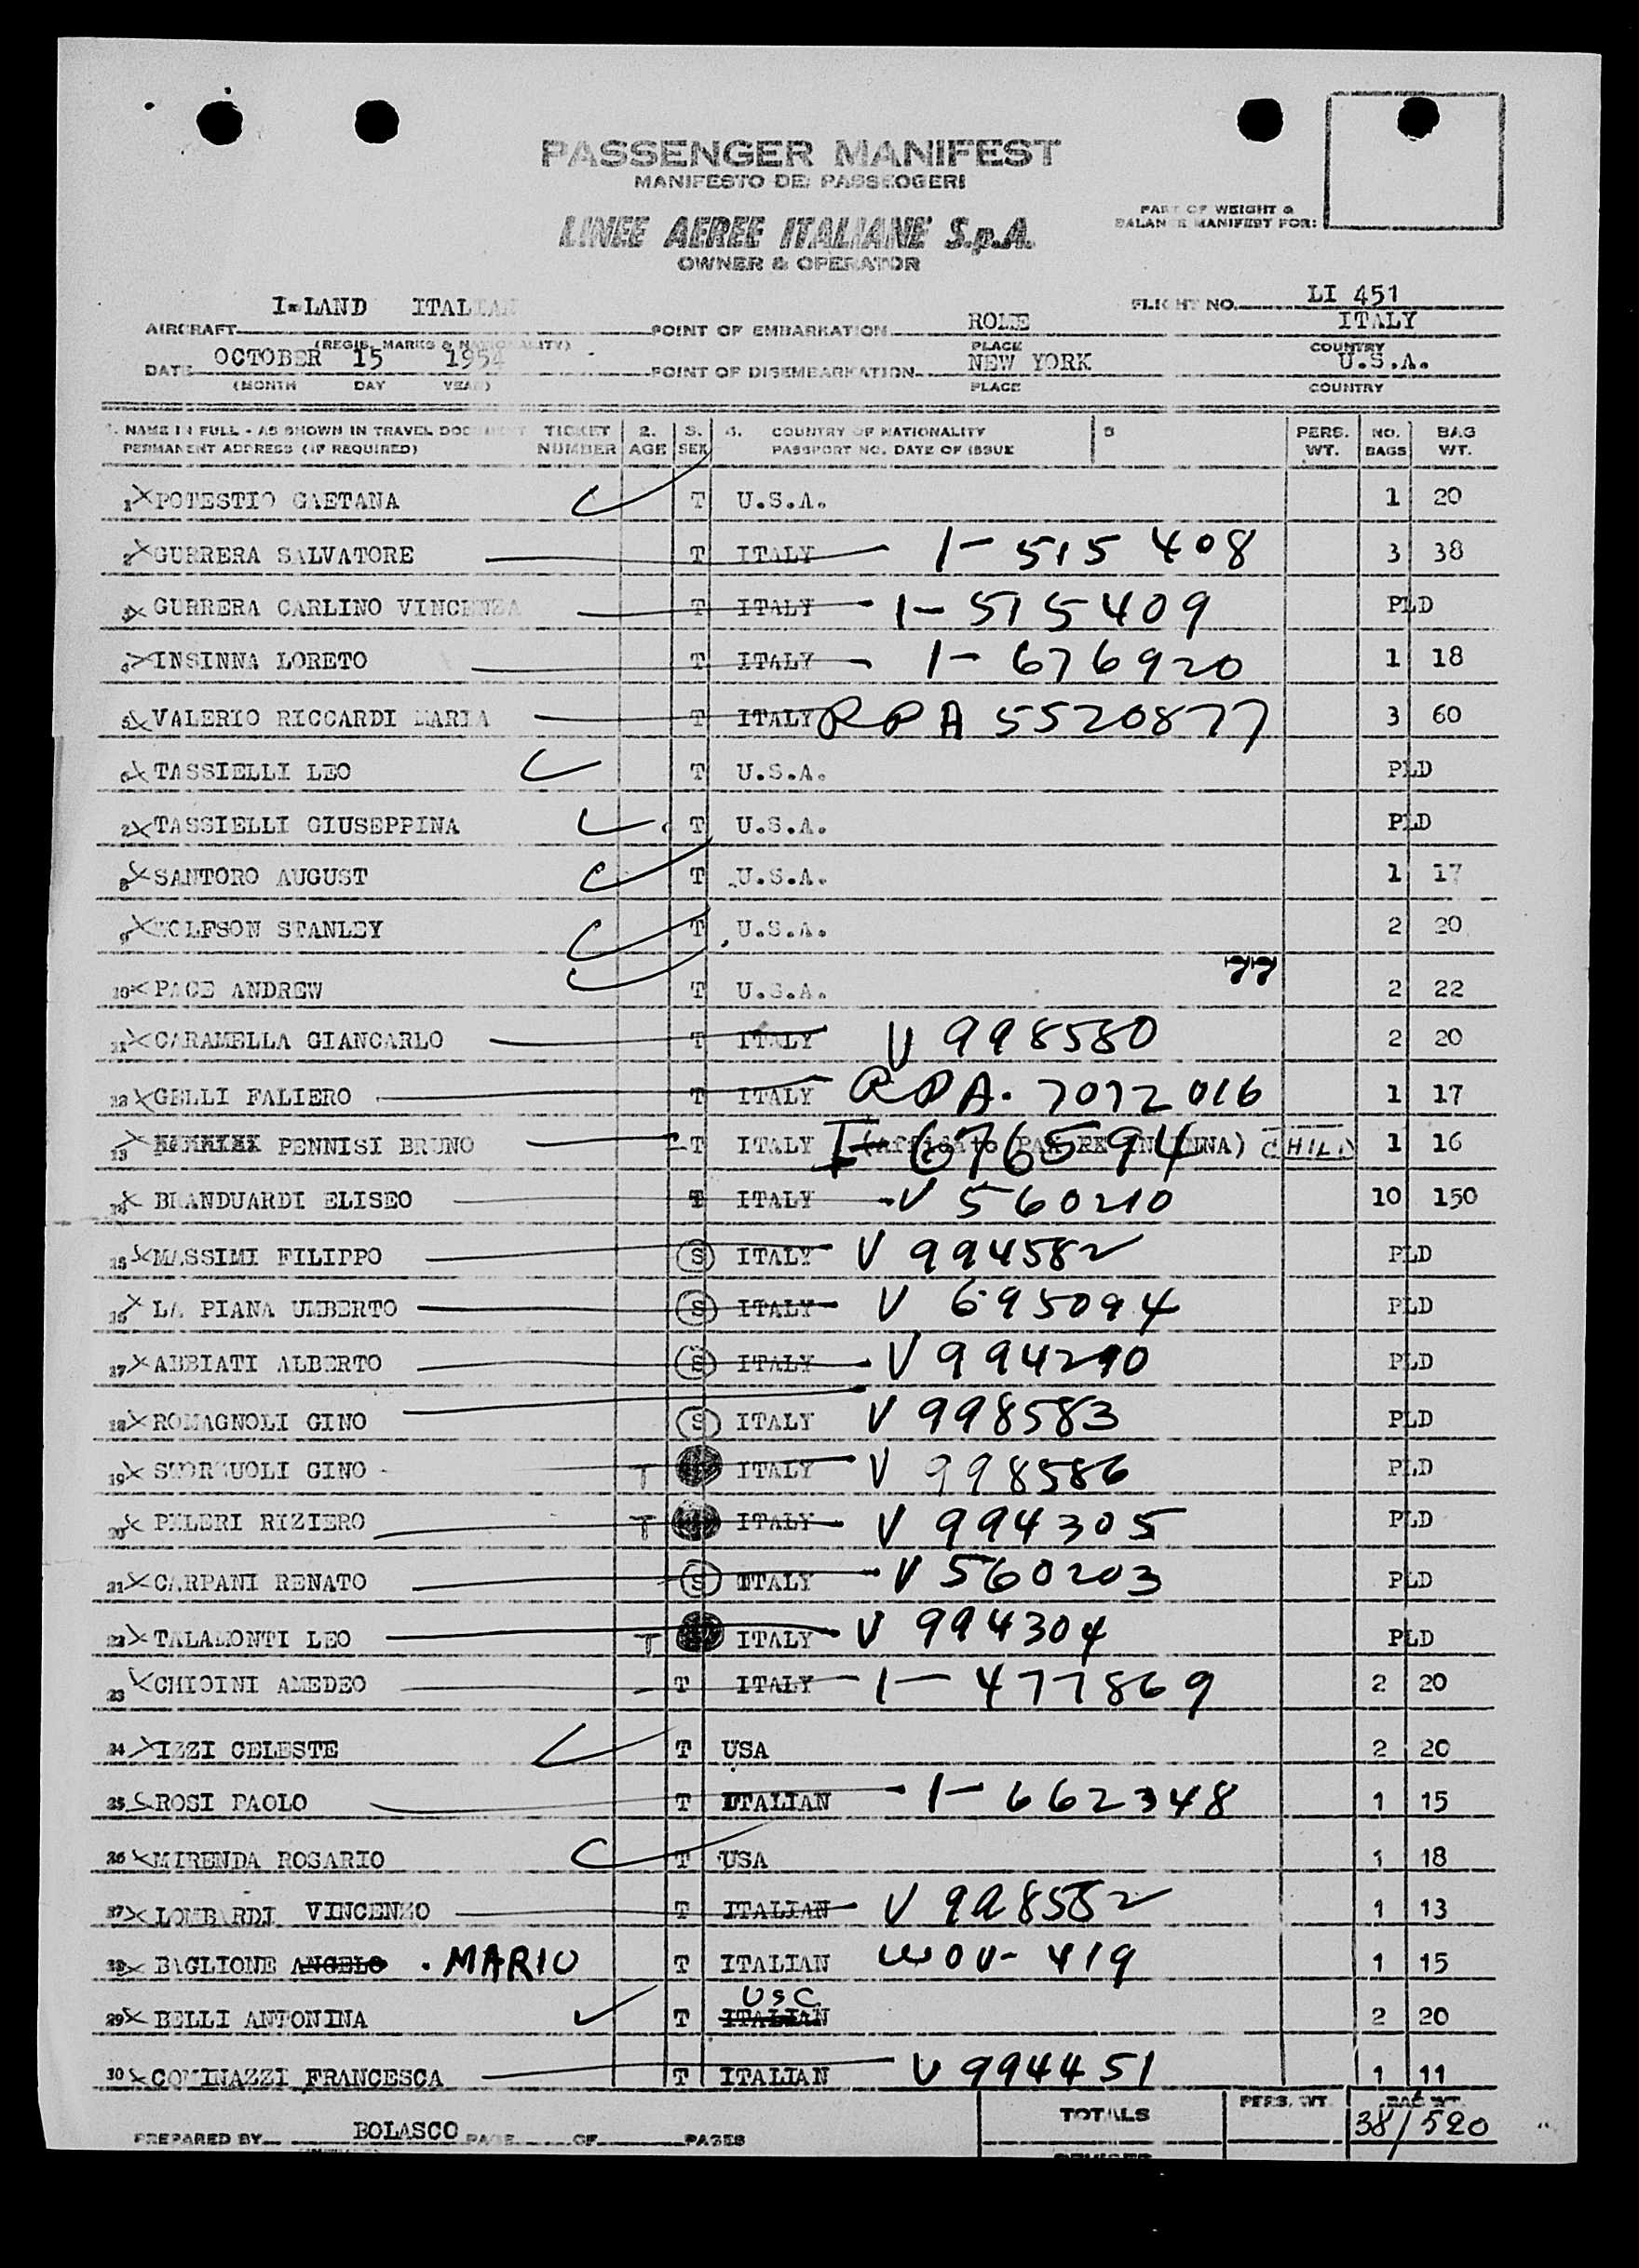 PASSENGER MANIFEST
MANIFESTO DEI PASSEGGERI
LINEE AEREE ITALIANE S.p.A.
OWNER & OPERATOR
PART OF WEIGHT &
BALANCE MANIFEST FOR:
AIRCRAFT I-LAND ITALIAN POINT OF EMBARKATION ROME FLIGHT NO. LI 451
ITALY
(REGIS. MARKS & NATIONALITY) PLACE COUNTRY
DATE OCTOBER 15 1954 POINT OF DISEMBARKATION NEW YORK U.S.A.
(MONTH DAY YEAR) PLACE COUNTRY
1. NAME IN FULL - AS SHOWN IN TRAVEL DOCUMENT TICKET 2. 3. 4. COUNTRY OF NATIONALITY 5 PERS. NO. BAG
PERMANENT ADDRESS (IF REQUIRED) NUMBER AGE SEX PASSPORT NO. DATE OF ISSUE WT. BAGS WT.
1 POTESTIO GAETANA T U.S.A. 1 20
2 GURRERA SALVATORE T ITALY 1-515408 3 38
3 GURRERA CARLINO VINCENZA T ITALY 1-515409 PLD
4 INSINNA LORETO T ITALY 1-676920 1 18
5 VALERIO RICCARDI MARIA T ITALY RPA 5520877 3 60
6 TASSIELLI LEO T U.S.A. PLD
7 TASSIELLI GIUSEPPINA T U.S.A. PLD
8 SANTORO AUGUST T U.S.A. 1 17
9 WOLFSON STANLEY T U.S.A. 2 20
10 PACE ANDREW T U.S.A. 2 22
11 CARAMELLA GIANCARLO T ITALY V 998580 2 20
12 GELLI FALIERO T ITALY RPA. 7072016 1 17
13 PENNISI BRUNO T ITALY I-676594 CHILD 1 16
14 BRANDUARDI ELISEO T ITALY V 560210 10 150
15 MASSIMI FILIPPO S ITALY V 994582 PLD
16 LA PIANA UMBERTO S ITALY V 695094 PLD
17 ABBIATI ALBERTO S ITALY V 994290 PLD
18 ROMAGNOLI GINO S ITALY V 998583 PLD
19 GINO T ITALY V 998586 PLD
20 PELERI RIZIERO T ITALY V 994305 PLD
21 CARPANI RENATO S ITALY V 560203 PLD
22 TALAMONTI LEO T ITALY V 994304 PLD
23 CHIOINI AMEDEO T ITALY 1-477869 2 20
24 IZZI CELESTE T USA 2 20
25 ROSI PAOLO T ITALIAN 1-662348 1 15
26 MIRENDA ROSARIO T USA 1 18
27 LOMBARDI VINCENZO T ITALIAN V 998582 1 13
28 BAGLIONE ANGELO . MARIO T ITALIAN 1 15
USC
29 BELLI ANTONINA T ITALIAN 2 20
30 COMINAZZI FRANCESCA T ITALIAN V 994451 1 11
PREPARED BY BOLASCO PAGE OF PAGES TOTALS PERS. WT. BAG WT.
38/520